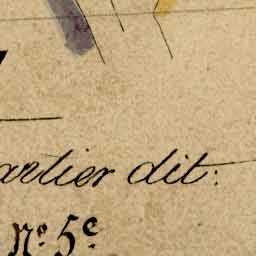 artier dit:
Nº 5ᵉ